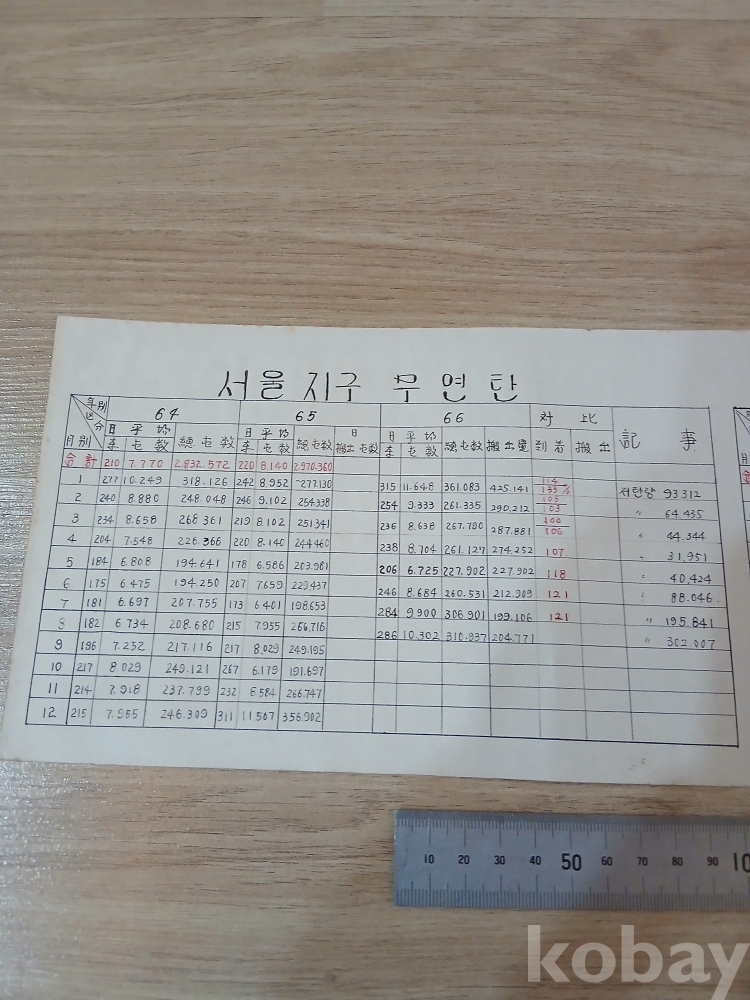 서울지구 무연탄
年別 区分 月別 64 65 66 対比 記事
日平均 日平均 日 日平均
車 屯数 總屯数 車 屯数 總屯数 搬出屯数 車 屯数 總屯数 搬出量 到着 搬出
合計 210 7.770 2.832.572 220 8.140 2.970.360
1 277 10.249 318.126 242 8.952 277.130 315 11.648 361.083 425.141 114 133% 저탄량 93.312
2 240 8.880 248.048 246 9.102 254.338 254 9.333 261.335 290.212 105 103 〃 64.435
3 234 8.658 268.361 219 8.102 251.341 236 8.638 267.780 287.881 100 106 〃 44.344
4 204 7.548 226.366 220 8.140 244.460 238 8.704 261.127 274.252 107 〃 31.951
5 184 6.808 194.641 178 6.586 203.981 206 6.725 227.902 227.902 118 〃 40.424
6 175 6.475 194.250 207 7.659 229.437 246 8.684 260.531 212.909 121 〃 88.046
7 181 6.697 207.755 173 6.401 198.653 284 9.900 306.901 199.106 121 〃 195.841
8 182 6.734 208.680 215 7.955 266.716 286 10.302 310.937 204.771 〃 302.007
9 196 7.252 217.116 217 8.029 249.195
10 217 8.029 249.121 267 6.179 191.697
11 214 7.918 237.799 232 8.584 266.747
12 215 7.955 246.309 311 11.507 356.902
10 20 30 40 50 60 70 80 90 10
kobay